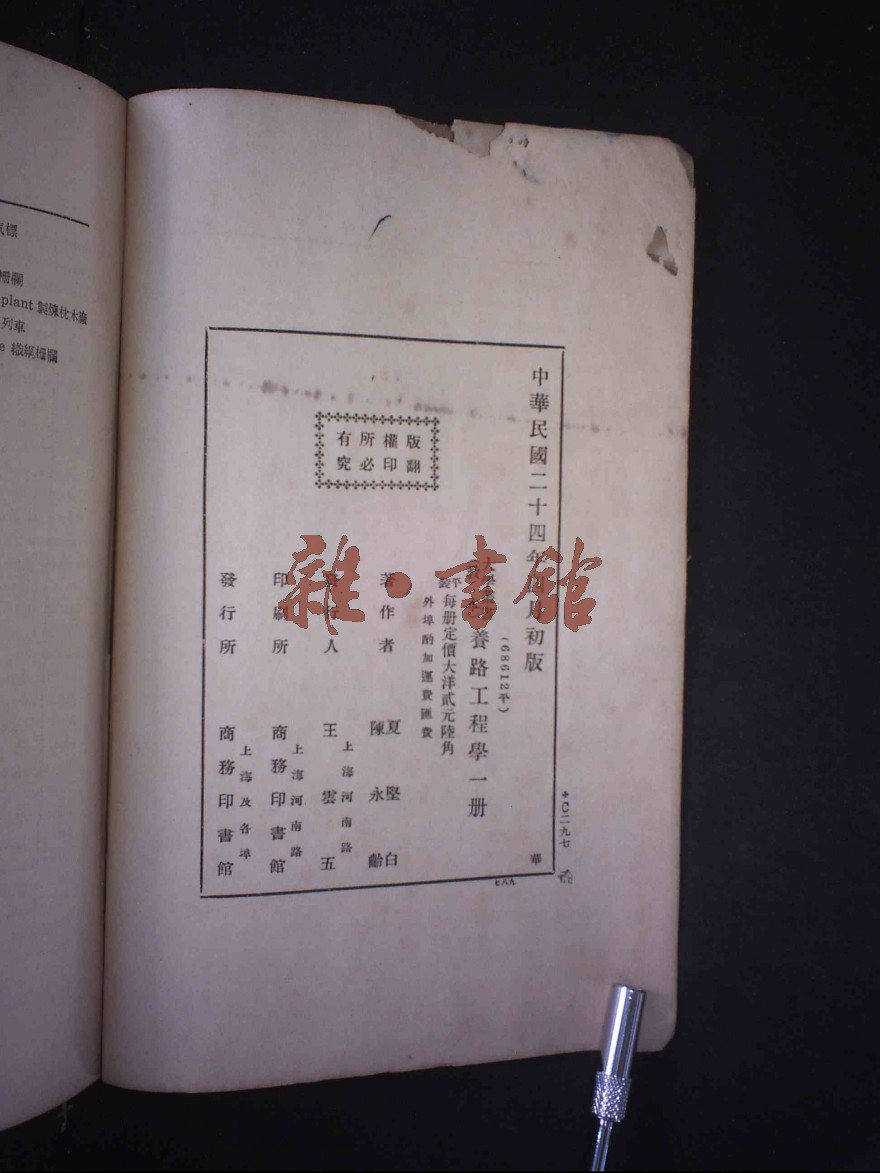 中華民國二十四年四月初版
(68612平)
養路工程學一册
平製
每册定價大洋貳元陸角
外埠酌加運費匯費
版權所有
翻印必究
著作者
夏堅白
陳永齡
發行人
上海河南路
王雲五
印刷所
上海河南路
商務印書館
發行所
上海及各埠
商務印書館
華
C二九七
九八七
栅欄
plant 製煉枕木廠
列車
e 織網栅欄
雜·書館